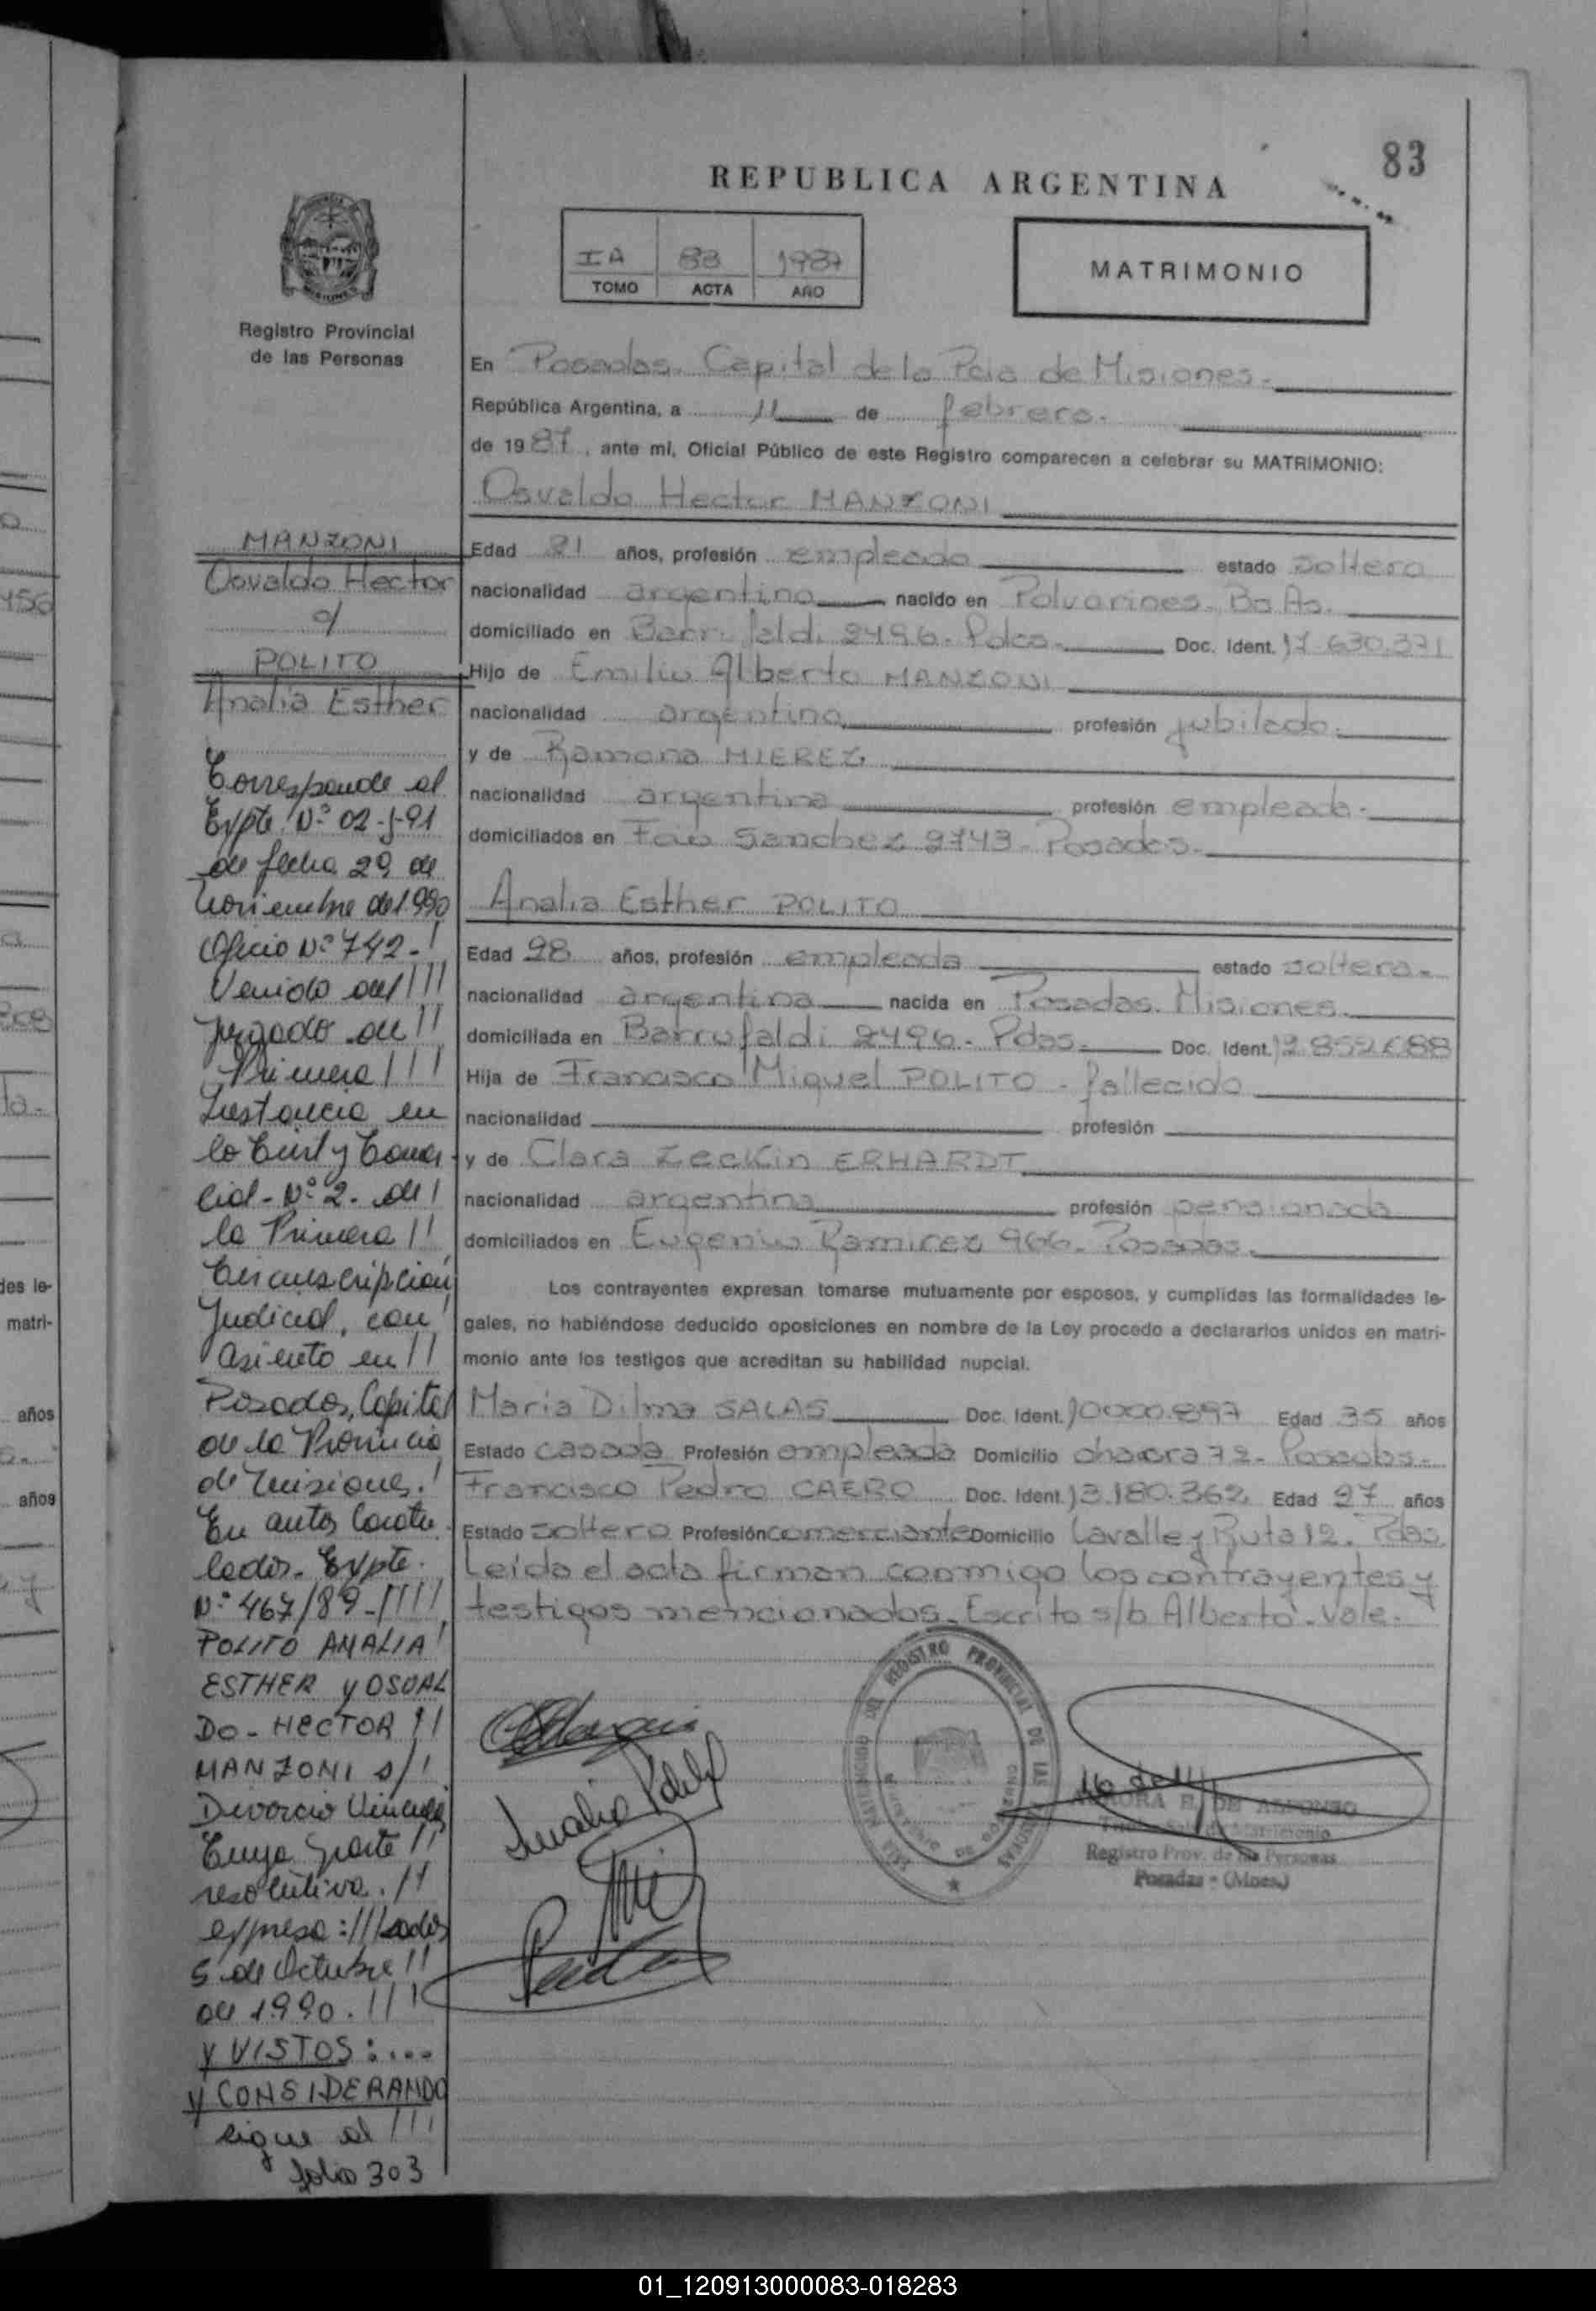 83
REPUBLICA ARGENTINA
IA 83 1987
TOMO ACTA AÑO
MATRIMONIO
Registro Provincial
de las Personas
En Posadas. Capital de la Pcia de Misiones.
República Argentina, a 11 de febrero.
de 1987, ante mí, Oficial Público de este Registro comparecen a celebrar su MATRIMONIO:
Osvaldo Hector MANZONI
Edad 21 años, profesión empleado estado soltero
nacionalidad argentino nacido en Polvorines. Bs As.
domiciliado en Barrufaldi 2496. Pdas. Doc. Ident. 17.630.371
Hijo de Emilio Alberto MANZONI
nacionalidad argentino profesión jubilado.
y de Ramona MIEREZ.
nacionalidad argentina profesión empleada.
domiciliados en Fco Sanchez 2743. Posadas.
Analia Esther POLITO
Edad 28 años, profesión empleada estado soltera.
nacionalidad argentina nacida en Posadas. Misiones.
domiciliada en Barrufaldi 2496. Pdas. Doc. Ident. 12.852.688
Hija de Francisco Miguel POLITO - fallecido
nacionalidad profesión
y de Clara Zeckin ERHARDT
nacionalidad argentina profesión pensionada
domiciliados en Eugenio Ramirez 966. Posadas.
Los contrayentes expresan tomarse mutuamente por esposos, y cumplidas las formalidades le-
gales, no habiéndose deducido oposiciones en nombre de la Ley procedo a declararlos unidos en matri-
monio ante los testigos que acreditan su habilidad nupcial.
Maria Dilma SALAS Doc. Ident. 10000.897 Edad 35 años
Estado casada Profesión empleada Domicilio chacra 72. Posadas.
Francisco Pedro CAERO Doc. Ident. 13.180.362 Edad 27 años
Estado soltero Profesión comerciante Domicilio Lavalle y Ruta 12. Pdas
Leída el acta firman conmigo los contrayentes y
testigos mencionados. Escrito s/b Alberto. Vale.
MANZONI
Osvaldo Hector
c/
POLITO
Analia Esther
Corresponde al
Expte. Nº 02-J-91
de fecha 29 de
noviembre de 1990
Oficio Nº 742.-!
Venido del !!!
Juzgado de !!
Primera !!!
Instancia en
lo Civil y Comer
cial - Nº 2. de !
la Primera !!
Circunscripción
Judicial, con !
asiento en !!
Posadas, Capital
de la Provincia
de Misiones. !
En autos Caratu
lados. Expte.
Nº 467/89-!!!!
POLITO ANALIA !
ESTHER y OSVAL
DO - HECTOR !!
MANZONI s/!
Divorcio Vincular
Cuya parte !!
resolutiva. !!
expresa: !!!
5 de Octubre !!
de 1990. !!!
Y VISTOS: ...
Y CONSIDERANDO
sigue al !!!
folio 303
Analia Polito
REGISTRO PROVINCIAL DE LAS PERSONAS
AURORA B. DE ALFONZO
Registro Prov. de las Personas
Posadas - (Mnes.)
des le-
matri-
años
años
01_120913000083-018283